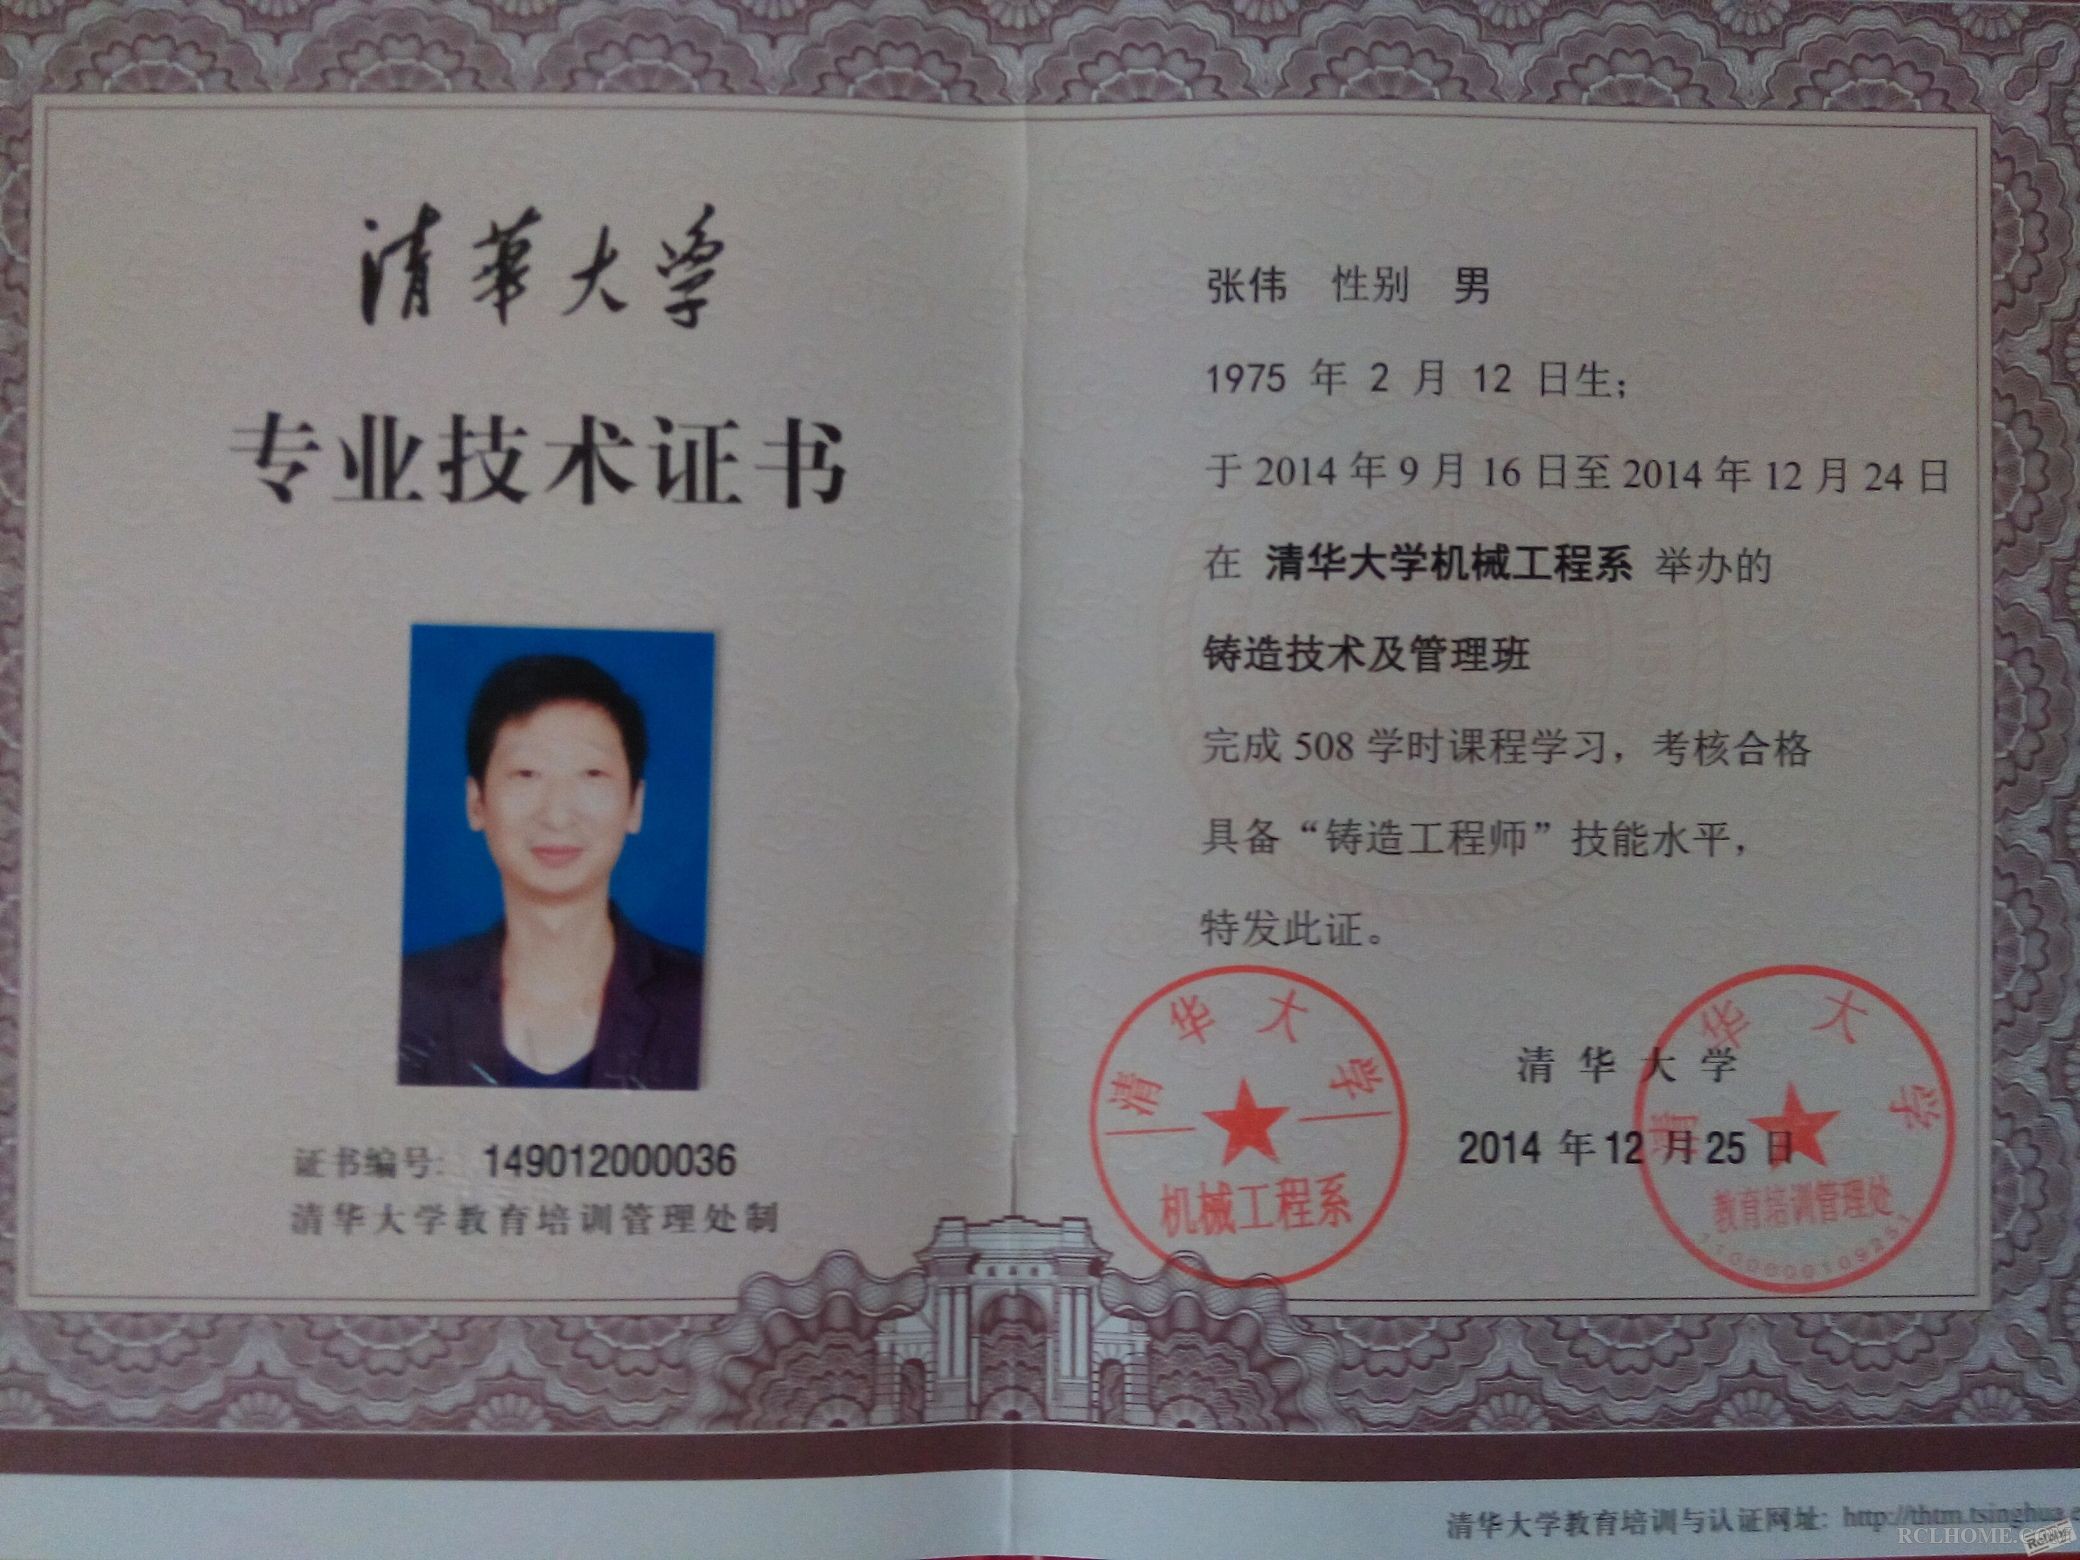 清華大学
专业技术证书
证书编号: 149012000036
清华大学教育培训管理处制
张伟 性别 男
1975 年 2 月 12 日生;
于 2014 年 9 月 16 日至 2014 年 12 月 24 日
在 清华大学机械工程系 举办的
铸造技术及管理班
完成 508 学时课程学习，考核合格
具备“铸造工程师”技能水平，
特发此证。
清华大学
2014 年 12 月 25 日
清华大学
机械工程系
清华大学
教育培训管理处
清华大学教育培训与认证网址: http://thtm.tsinghua.e
RCLHOME.COM